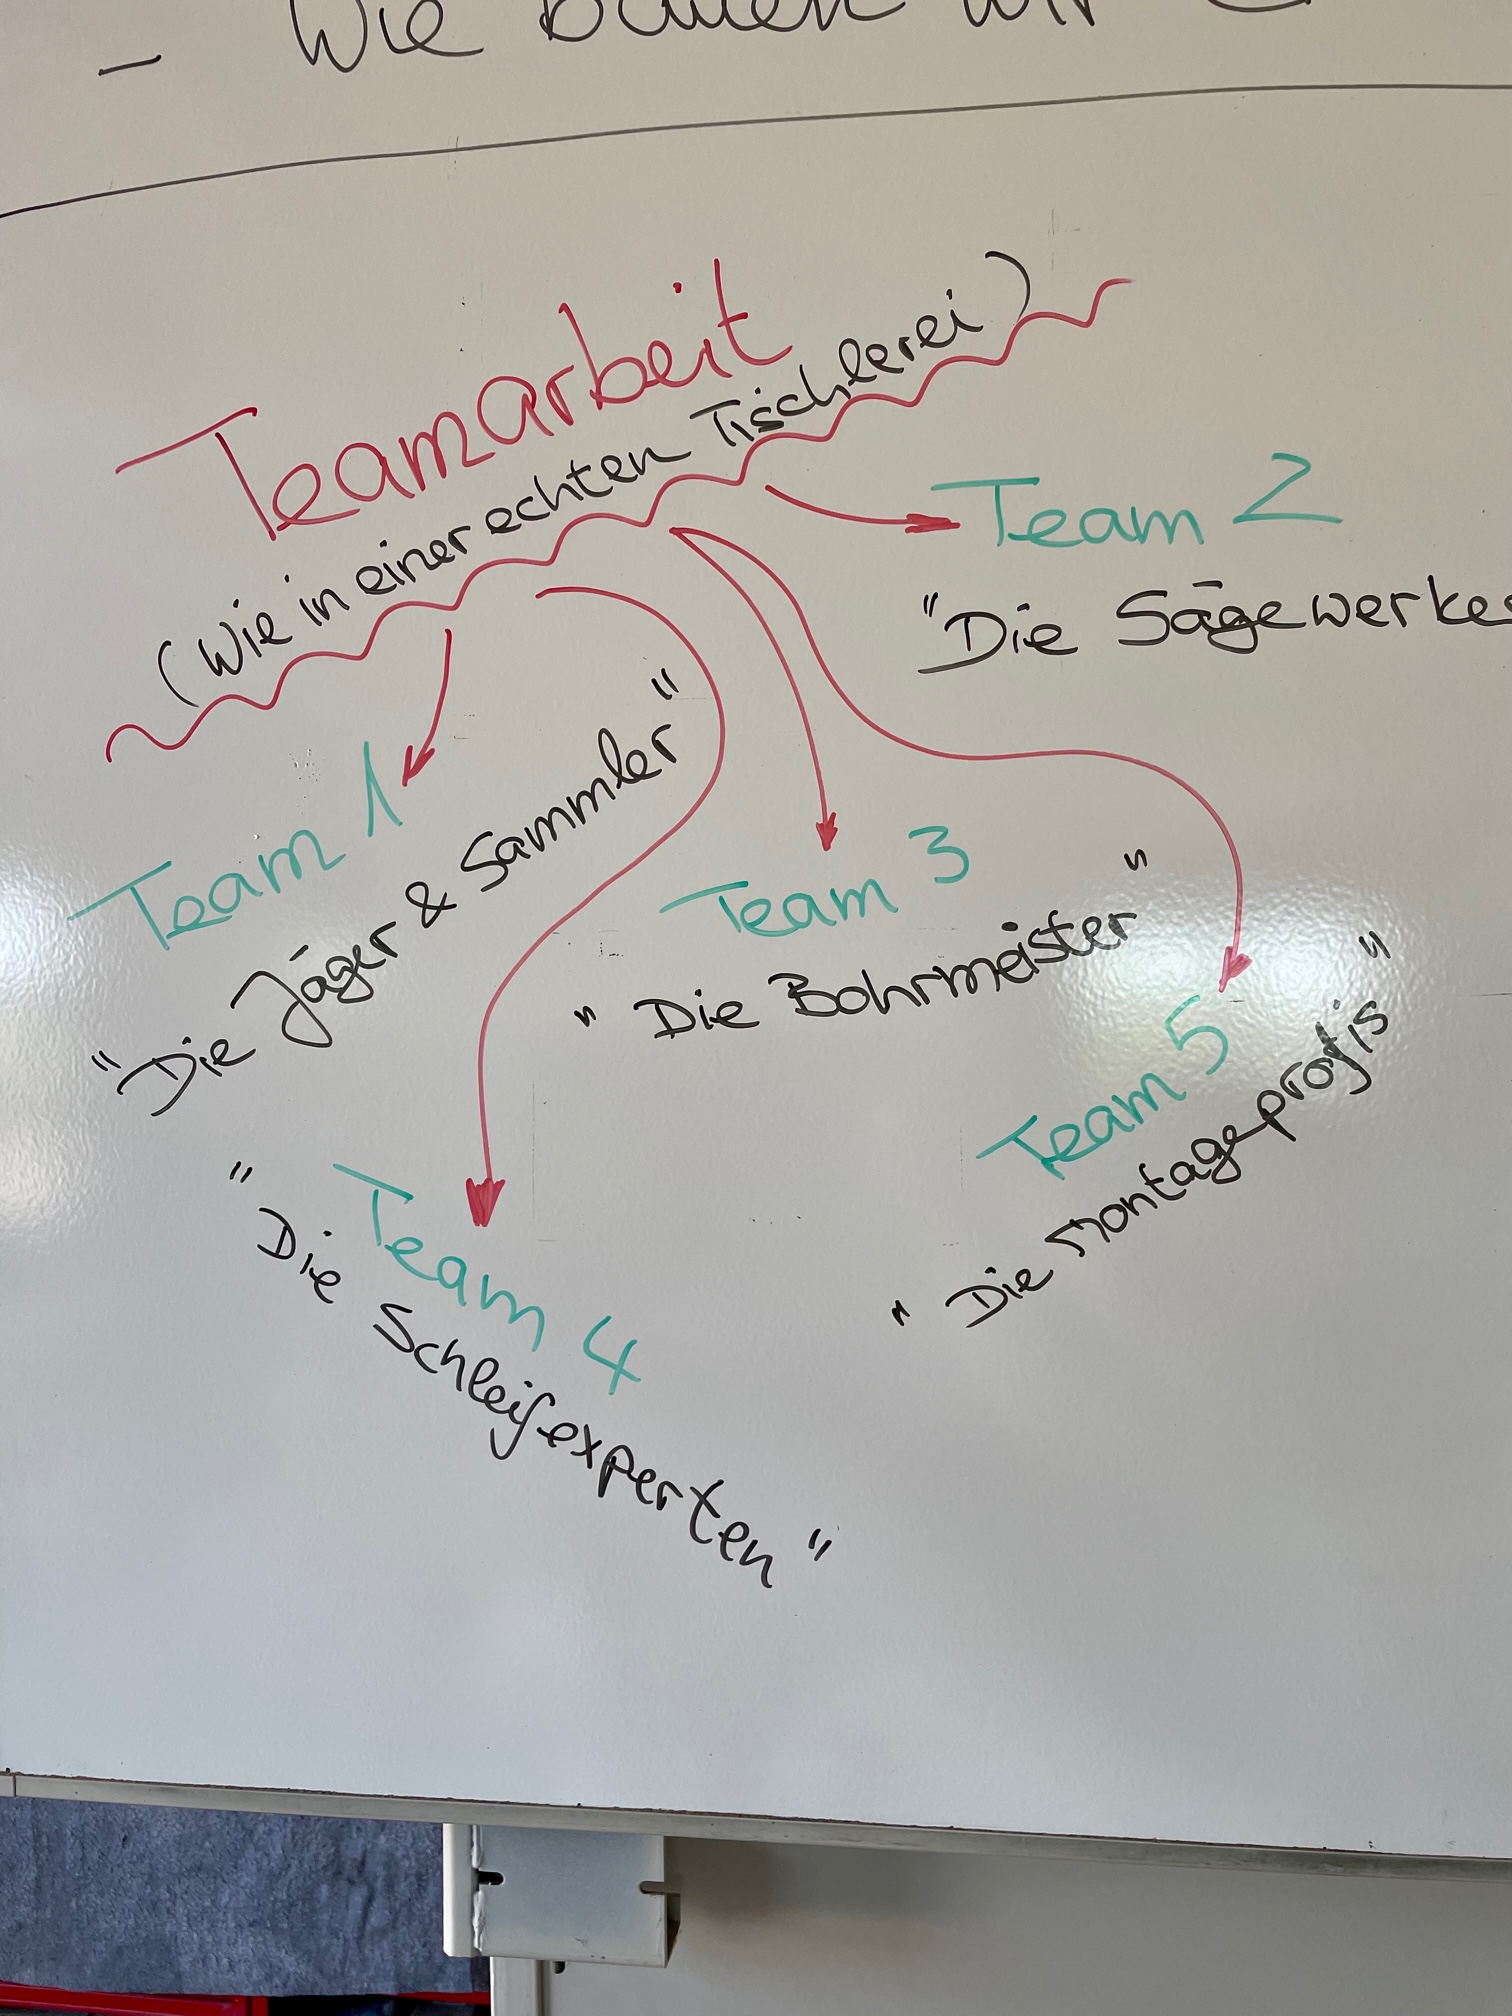 - Wie bauen wir
Teamarbeit
(Wie in einer echten Tischlerei)
Team 2
"Die Sägewerke
Team 1
"Die Jäger & Sammler"
Team 3
"Die Bohrmeister"
Team 5
"Die Montageprofis"
Team 4
"Die Schleifexperten"